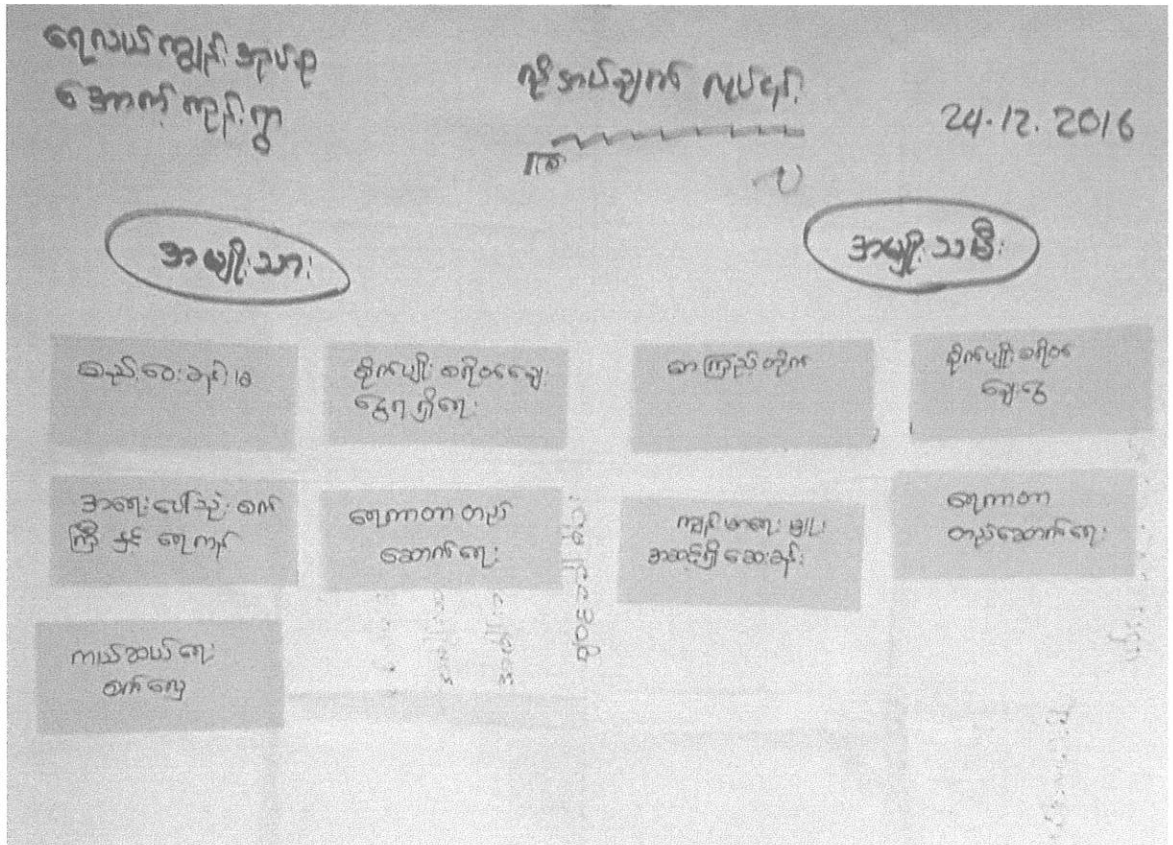 ရေလယ်ကျွန်းအုပ်စု
အောက်ကျွန်းရွာ
လိုအပ်ချက် လုပ်ငန်း
24.12.2016
အမျိုးသား
အမျိုးသမီး
စိုက်ပျိုးစရိတ်ချေး
ငွေရရှိရေး
စာကြည့်တိုက်
စိုက်ပျိုးစရိတ်
ချေးငွေ
အရေးပေါ်သုံး စက်
ကြီး နှင့် ရေကန်
ရေကာတာ တည်
ဆောက်ရေး
ကျန်းမာရေးမှူး
အဆင့်ရှိ ဆေးခန်း
ရေကာတာ
တည်ဆောက်ရေး
ကယ်ဆယ်ရေး
စက်လှေ